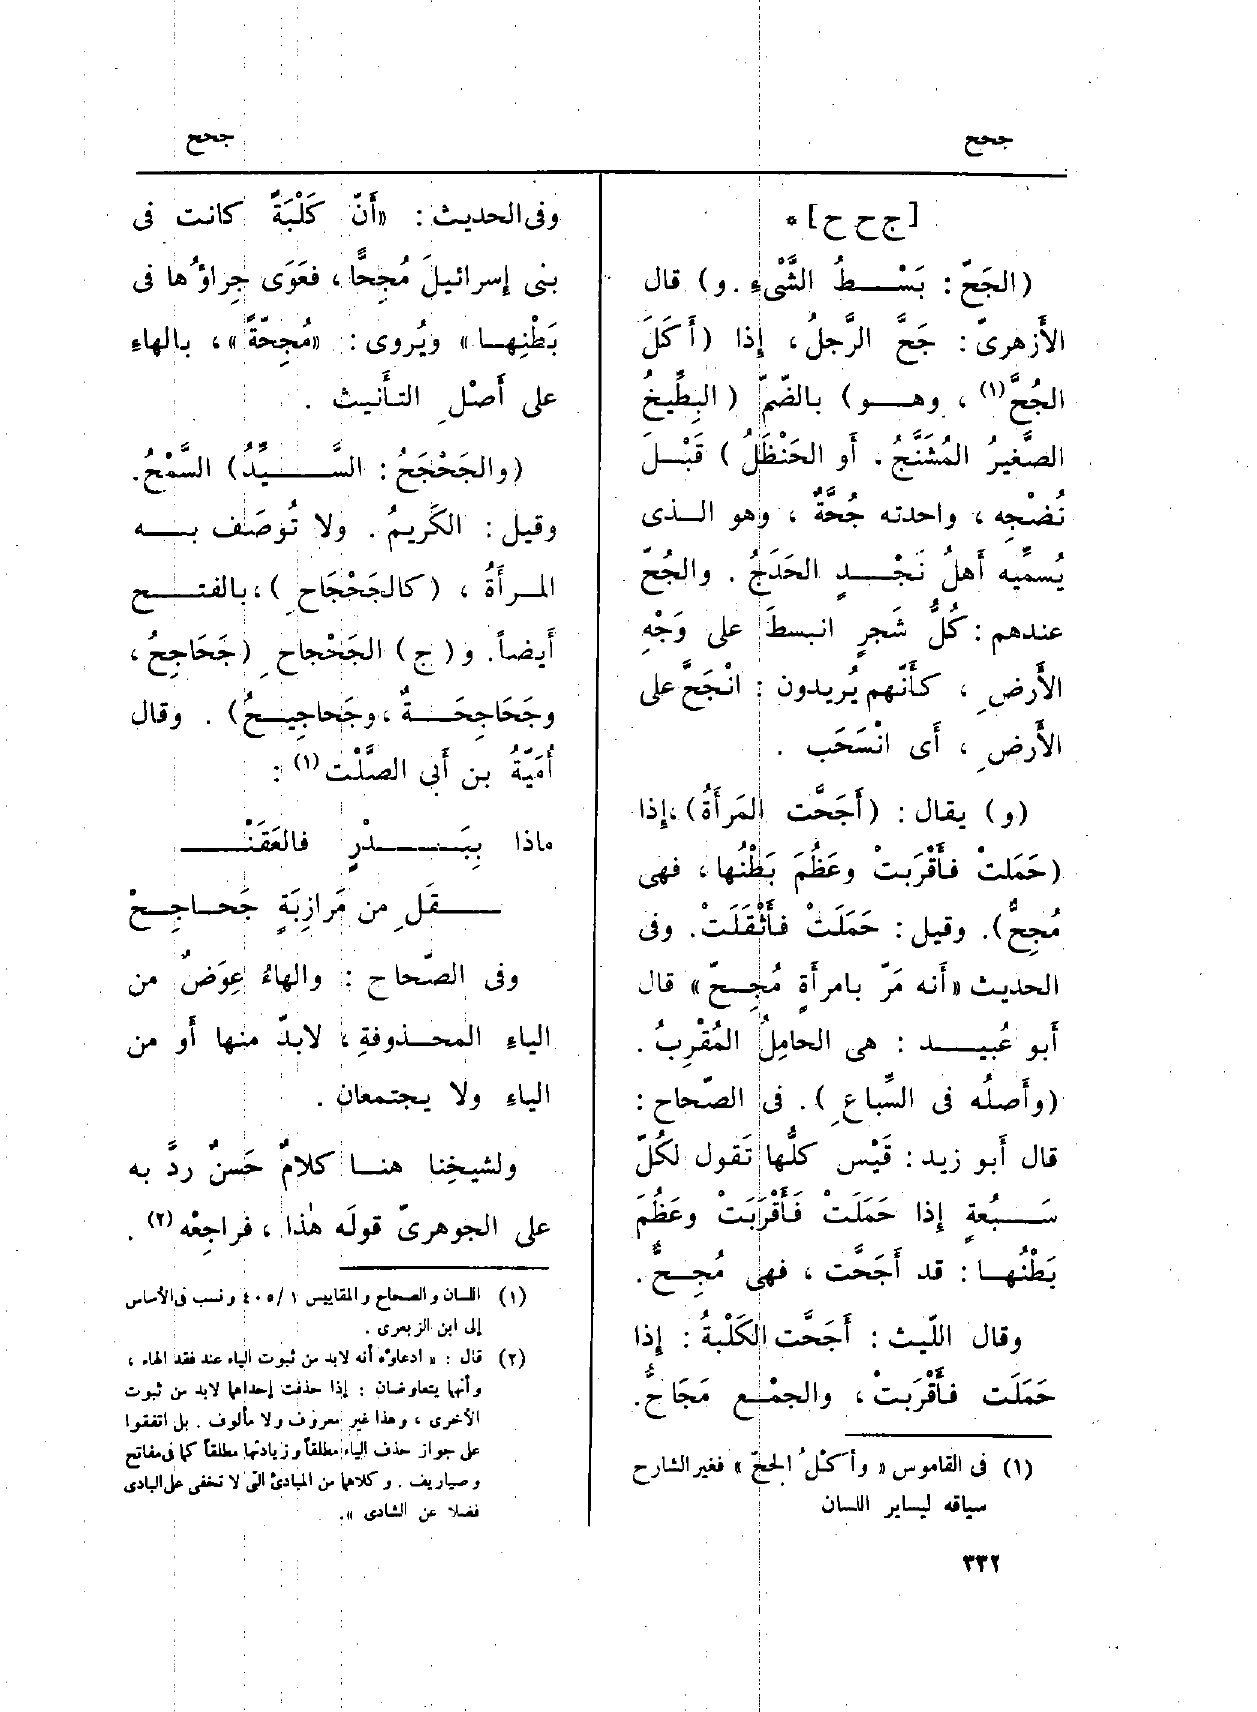 جحح
جحح
[ج ح ح] *
(الجَحّ: بَسْطُ الشَّىْءِ. و) قال
الأَزهرىّ: جَحَّ الرَّجلُ، إِذا (أَكَلَ
الجُحَّ(١)، وهو) بالضّمّ (البِطِّيخُ
الصَّغيرُ المُشَنَّجُ. أَو الحَنْظَلُ) قَبْلَ
نُضْجِه، واحدته جُحَّةٌ، وهو الذى
يُسمِّيه أَهلُ نَجْدٍ الحَدَجُ. والجُحّ
عندهم: كُلُّ شَجرٍ انبسطَ على وَجْهِ
الأَرضِ، كأَنّهم يُريدون: انْجَحَّ على
الأَرضِ، أَى انْسَحَب.
(و) يقال: (أَجَحَّت المَرأَةُ)، إِذا
(حَمَلتْ فأَقْرَبتْ وعَظُمَ بَطْنُها، فهى
مُجِحٌّ). وقيل: حَمَلَتْ فأَثْقَلَتْ. وفى
الحديث «أَنه مَرّ بامرأَةٍ مُجِحّ» قال
أَبو عُبيد: هى الحامِلُ المُقْرِبُ.
(وأَصلُه فى السِّباعِ). فى الصّحاح:
قال أَبو زيد: قَيْس كلُّها تَقول لكُلّ
سَبُعةٍ إِذا حَمَلَتْ فَأَقْرَبَتْ وعَظُمَ
بَطْنُها: قد أَجَحَّت، فهى مُجِحٌّ.
وقال اللّيث: أَجَحَّت الكَلْبةُ: إِذا
حَمَلَت فأَقْرَبتْ، والجمْع مَجَاحُّ.
(١) فى القاموس «وأكَلُ الجحّ» فغير الشارح
سياقه ليساير اللسان
وفى الحديث: «أَنّ كَلْبَةً كانت فى
بنى إِسرائيلَ مُجِحًّا، فعَوَى جِراؤُها فى
بَطْنِها» ويُروى: «مُجِحَّةً»، بالهاءِ
على أَصْلِ التأنيث.
(والجَحْجَحُ: السَّيِّدُ) السَّمْحُ.
وقيل: الكَرِيمُ. ولا تُوصَف به
المرأَةُ، (كالجَحْجَاحِ)، بالفتح
أَيضاً. و (ج) الجَحْجاحِ (جَحَاجِحُ،
وجَحَاجِحَةٌ، وجَحاجِيحُ). وقال
أُمَيّةُ بن أَبى الصَّلْت(١):
ماذا بِبَدْرٍ فالعَقَنْـ
ـقَلِ من مَرازِبَةٍ جَحاجِحْ
وفى الصّحاح: والهاءُ عِوَضٌ من
الياءِ المحذوفةِ، لابدّ منها أَو من
الياءِ ولا يجتمعان.
ولشيخِنا هنا كلامٌ حَسنٌ ردَّ به
على الجوهرىّ قولَه هٰذا، فراجِعْه(٢).
(١) اللسان والصحاح والمقاييس ١/٤٠٥ ونسب فى الأساس
إلى ابن الزبعرى.
(٢) قال: «ادعاؤه أنه لابد من ثبوت الياء عند فقد الهاء،
وأنها يتعاوضان: إذا حذفت إحداها لابد من ثبوت
الأخرى، وهذا غير معروف ولا مألوف. بل اتفقوا
على جواز حذف الياء مطلقاً وزيادتها مطلقاً كما فى مفاتح
وصياريف. وكلاها من المبادئ التى لا تخفى على البادى
فضلا عن الشادى».
٣٣٢